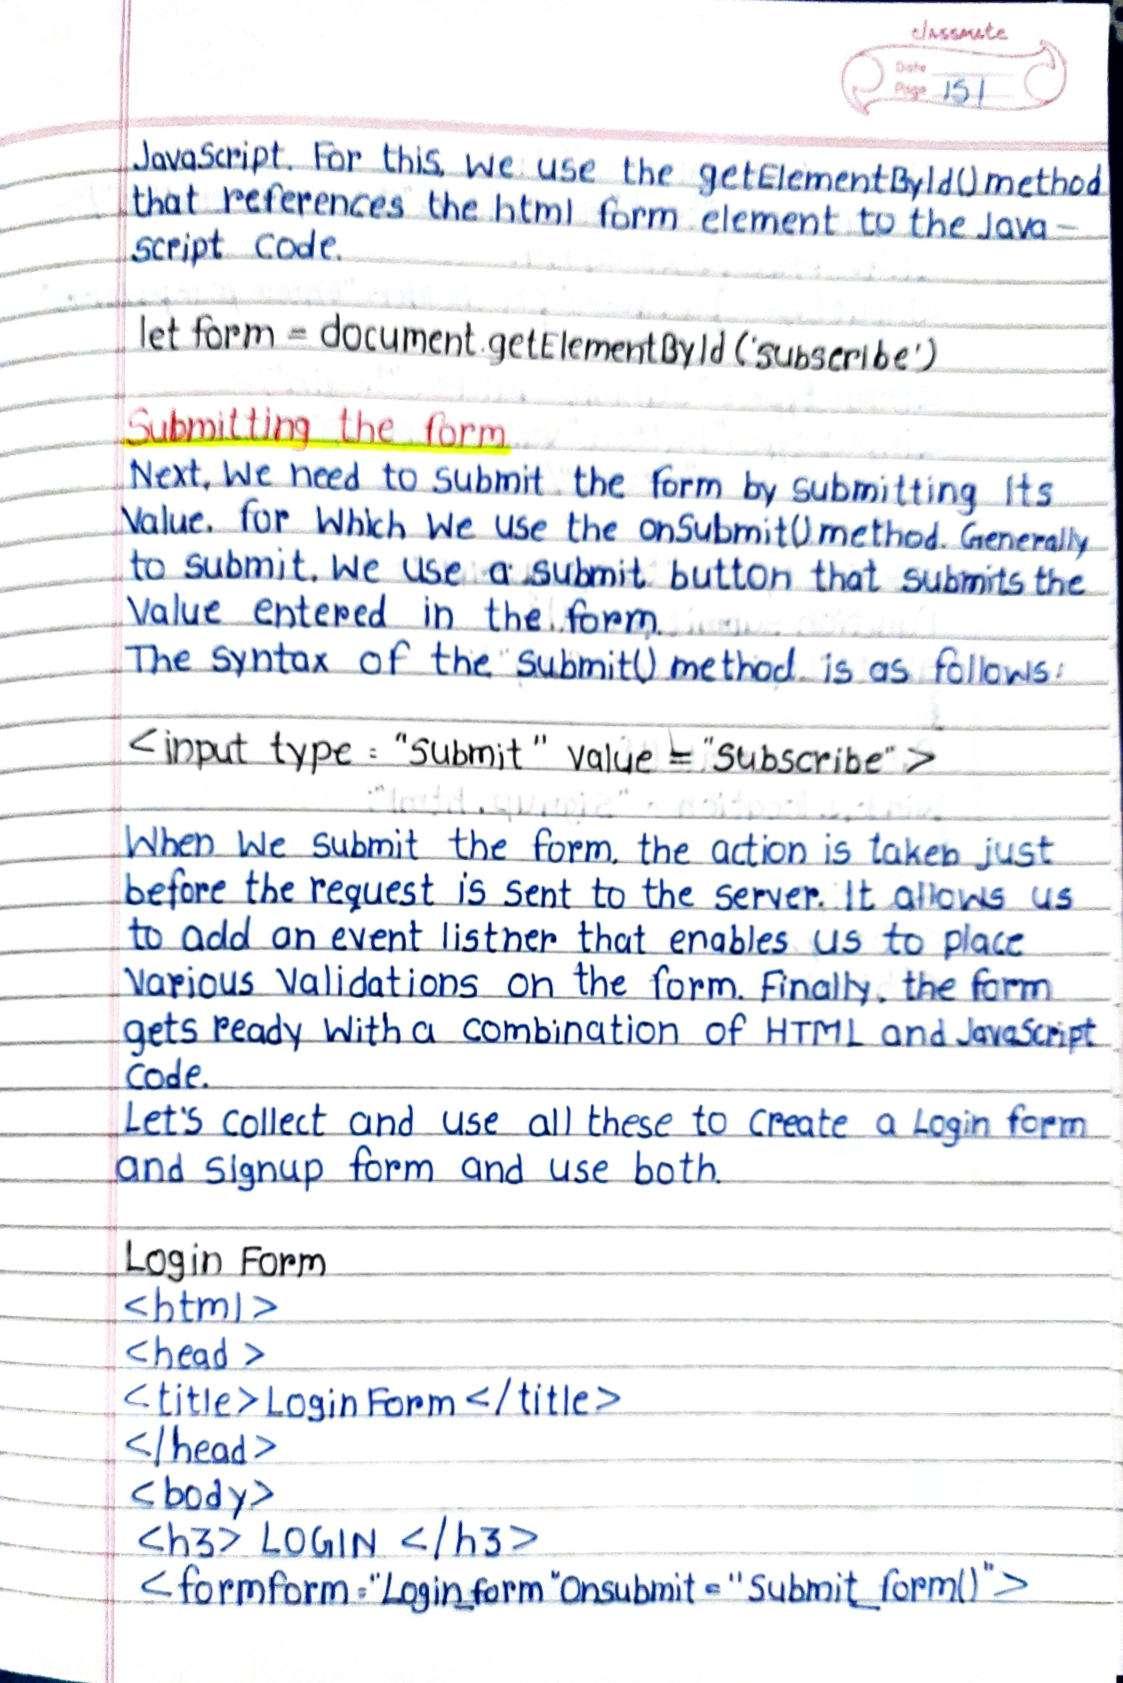 classmate
Date
Page 151
JavaScript. For this, we use the getElementById() method
that references the html form element to the Java-
script code.
let form = document.getElementById('subscribe')
Submitting the form
Next, We need to submit the form by submitting its
Value. for Which We use the onSubmit() method. Generally
to submit, We use a submit button that submits the
Value entered in the form.
The syntax of the submit() method is as follows:
<input type = "Submit" value = "Subscribe">
When We submit the form, the action is taken just
before the request is sent to the server. It allows us
to add an event listner that enables us to place
Various Validations on the form. Finally, the form
gets ready With a combination of HTML and JavaScript
Code.
Let's collect and use all these to create a Login form
and signup form and use both.
Login Form
<html>
<head>
<title>Login Form</title>
</head>
<body>
<h3> LOGIN </h3>
<formform="Login_form"Onsubmit="Submit_form()">